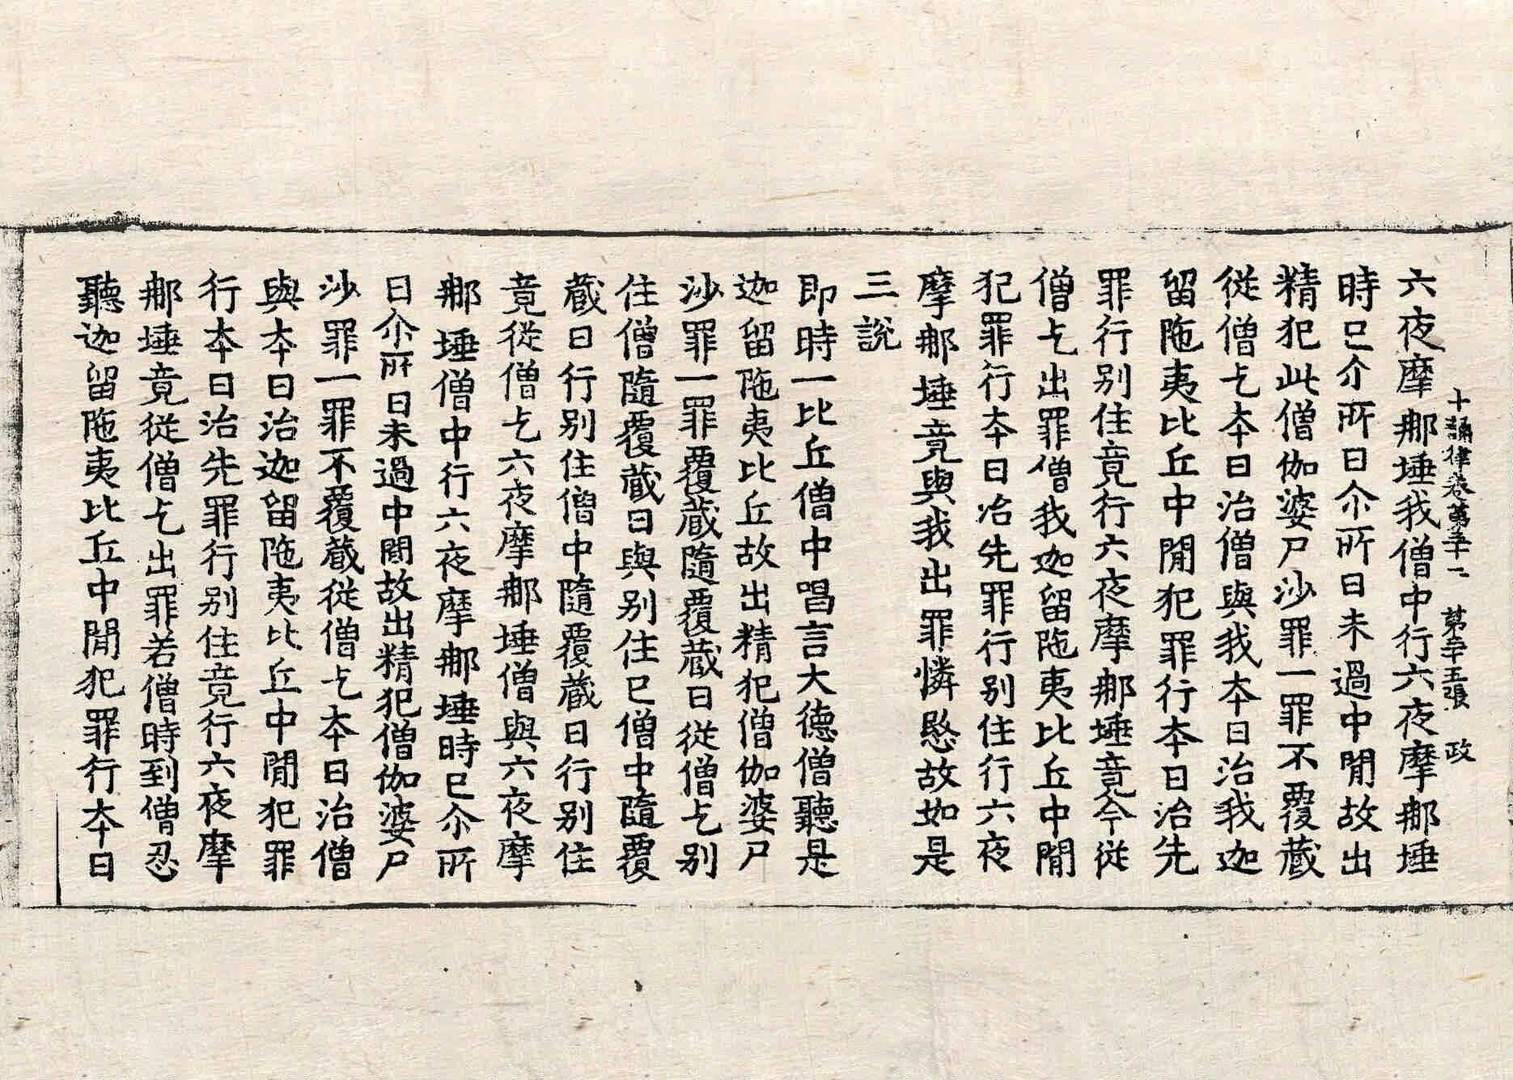 十誦律卷第 張 政
六夜摩那埵我僧中行六夜摩那埵
時已尒所日尒所日未過中閒故出
精犯此僧伽婆尸沙罪一罪不覆藏
從僧乞夲日治僧與我夲日治我迦
留陁夷比丘中閒犯罪行夲日治先
罪行別住竟行六夜摩那埵竟今從
僧乞出罪僧我迦留陁夷比丘中閒
犯罪行夲日治先罪行別住行六夜
摩那埵竟與我出罪憐愍故如是
三說
即時一比丘僧中唱言大德僧聽是
迦留陁夷比丘故出精犯僧伽婆尸
沙罪一罪覆藏隨覆藏日從僧乞別
住僧隨覆藏日與別住已僧中隨覆
藏日行別住僧中隨覆藏日行別住
竟從僧乞六夜摩那埵僧與六夜摩
那埵僧中行六夜摩那埵時已尒所
日尒所日未過中閒故出精犯僧伽婆尸
沙罪一罪不覆藏從僧乞夲日治僧
與夲日治迦留陁夷比丘中閒犯罪
行夲日治先罪行別住竟行六夜摩
那埵竟從僧乞出罪若僧時到僧忍
聽迦留陁夷比丘中閒犯罪行夲日